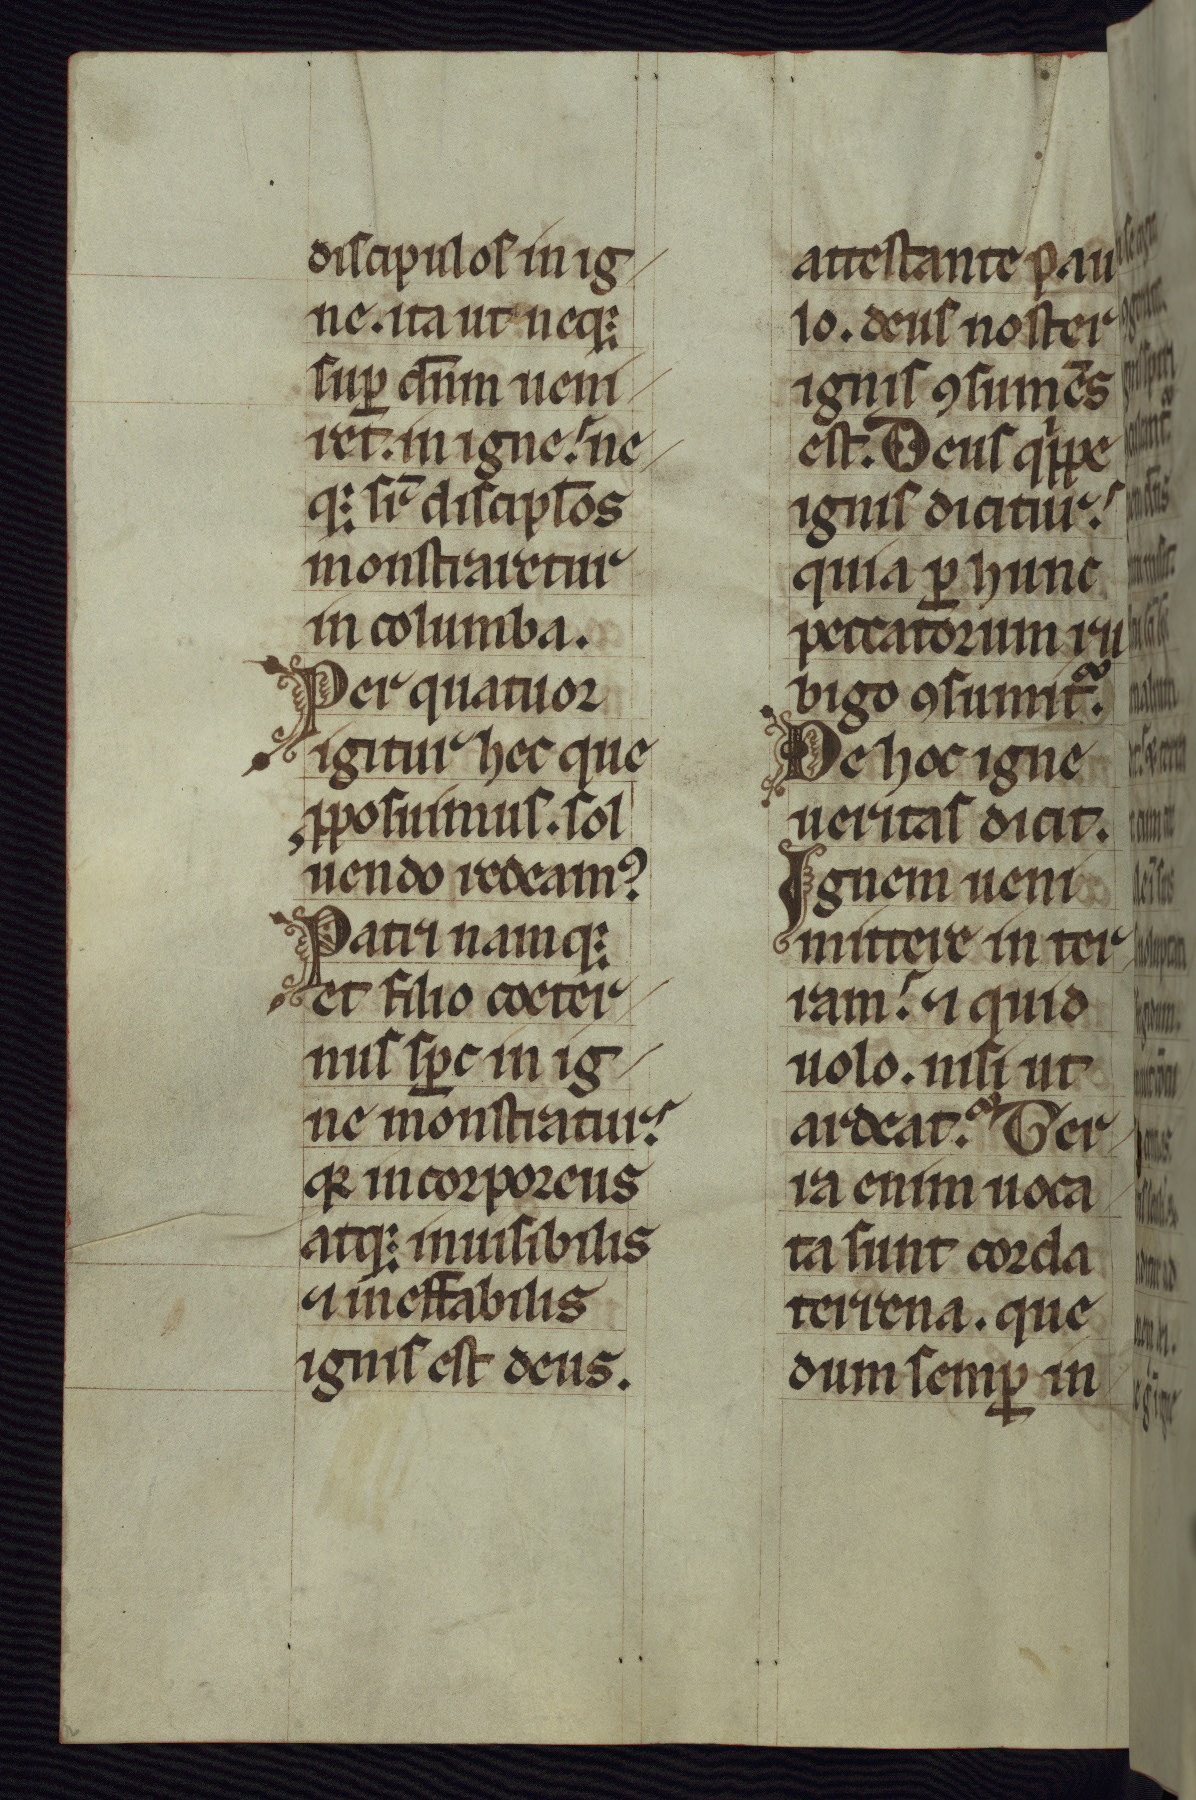 discipulos in ig
ne. ita ut neq;
sup̱ dn̄m ueni
ret. in igne. ne
q; sr̄ disciplōs
monstraretur
in columba.
Per quatuor
igitur hec que
ꝓposuimus. sol
uendo redeam?
Patri namq;
et filio coeter
nus sp̄c in ig
ne monstratur.
qꝛ incorporeus
atq; inuisibilis
⁊ ineffabilis
ignis est deus.
attestante pau
lo. deus noster
ignis ꝯsumēs
est. Deus qͥppe
ignis dicitur.
quia ꝑ hunc
peccatorum ru
bigo ꝯsumit᷑.
De hoc igne
ueritas dicit.
Ignem ueni
mittere in ter
ram. ⁊ quid
uolo. nisi ut
ardeat. Ter
ra enim uoca
ta sunt corda
terrena. que
dum semꝑ in